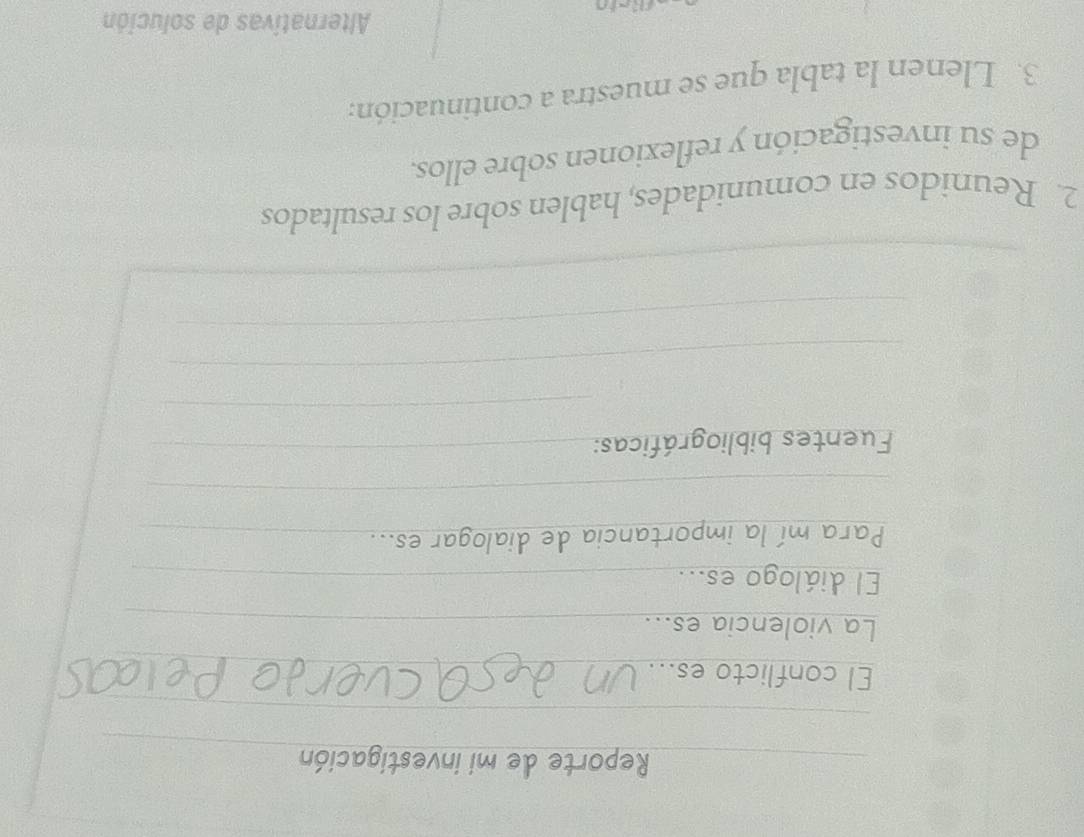 Reporte de mi investigación
El conflicto es... un desacuerdo Peleas
La violencia es...
El diálogo es...
Para mí la importancia de dialogar es...
Fuentes bibliográficas:
2. Reunidos en comunidades, hablen sobre los resultados
de su investigación y reflexionen sobre ellos.
3. Llenen la tabla que se muestra a continuación:
Alternativas de solución